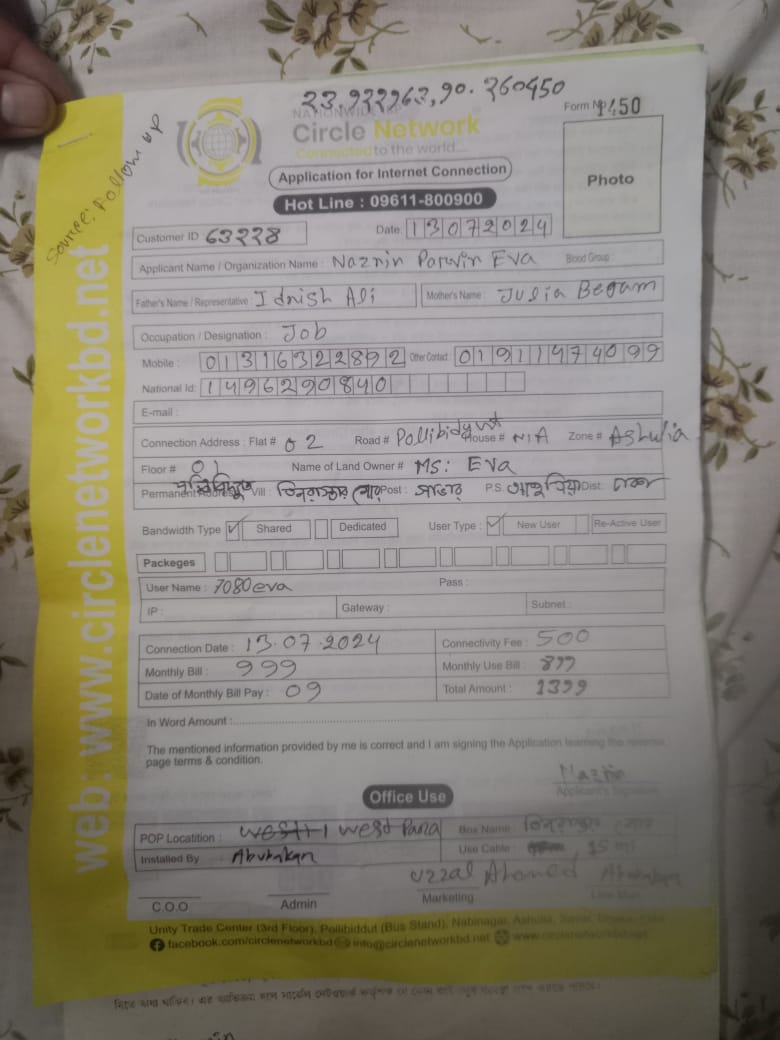 23.932963,90.260450
NATIONWIDE ISP
Circle Network
Connected to the world....
Form Nº 1450
Application for Internet Connection
Hot Line : 09611-800900
Photo
Source: Follow up
web: www.circlenetworkbd.net
Customer ID 63228 Date: 13072024
Applicant Name / Organization Name : Naznin Parvin Eva Blood Group :
Father's Name / Representative : Idnish Ali Mother's Name : Julia Begam
Occupation / Designation : Job
Mobile : 01316322892 Other Contact : 01911474099
National Id: 1496290840
E-mail :
Connection Address : Flat # 02 Road # Pollibidyut House # N/A Zone # Ashulia
Floor # 01 Name of Land Owner # Ms: Eva
Permanent Address Vill : পল্লিবিদ্যুৎ তিনরাস্তার মোড় Post : সাভার P.S. আশুলিয়া Dist: ঢাকা
Bandwidth Type ✓ Shared Dedicated User Type : ✓ New User Re-Active User
Packeges
User Name : 7080eva Pass :
IP : Gateway : Subnet :
Connection Date : 13.07.2024 Connectivity Fee : 500
Monthly Bill : 999 Monthly Use Bill : 899
Date of Monthly Bill Pay : 09 Total Amount : 1399
In Word Amount :
The mentioned information provided by me is correct and I am signing the Application learning the reverse
page terms & condition.
Naznin
Applicant's Signature
Office Use
POP Locatition : West para Box Name : তিনরাস্তার মোড়
Installed By Abubakar Use Cable : 15 mt
Uzzal Ahamed Abubakar
C.O.O Admin Marketing Line Man
Unity Trade Center (3rd Floor), Pollibiddut (Bus Stand), Nabinagar, Ashulia, Savar, Dhaka
facebook.com/circlenetworkbd info@circlenetworkbd.net www.circlenetworkbd.net